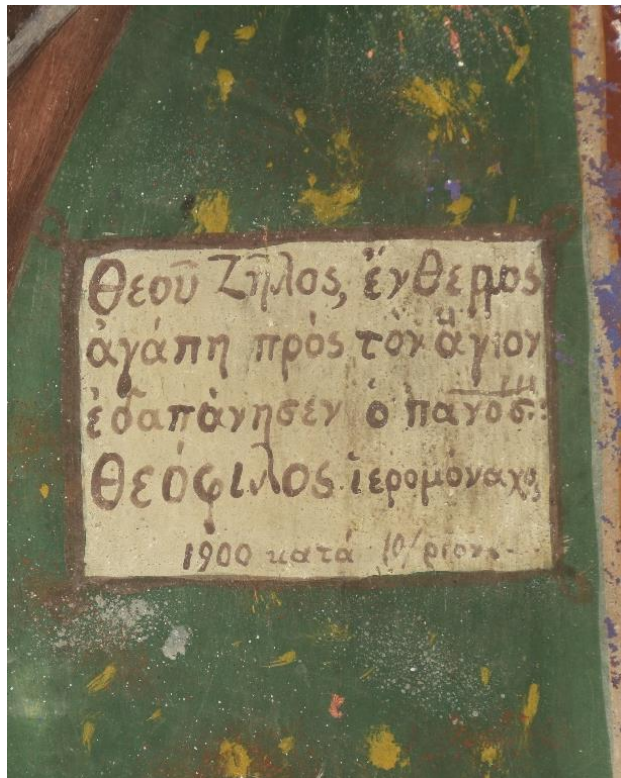 Θεοῦ Ζῆλος, ἔνθερμος
ἀγάπη πρὸς τὸν ἅγιον
ἐδαπάνησεν ὁ πανοσ:
Θεόφιλος ἱερομόναχος
1900 κατά 10/ριον